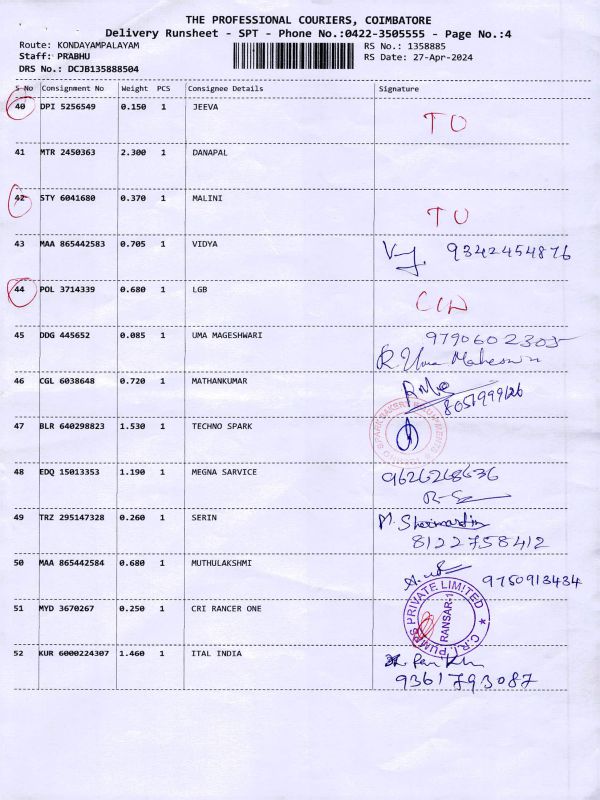 THE PROFESSIONAL COURIERS, COIMBATORE
Delivery Runsheet - SPT - Phone No.:0422-3505555 - Page No.:4
Route: KONDAYAMPALAYAM RS No.: 1358885
Staff: PRABHU RS Date: 27-Apr-2024
DRS No.: DCJB135888504
S No Consignment No Weight PCS Consignee Details Signature
40 DPI 5256549 0.150 1 JEEVA TO
41 MTR 2450363 2.300 1 DANAPAL
42 STY 6041680 0.370 1 MALINI TO
43 MAA 865442583 0.705 1 VIDYA 9342454876
44 POL 3714339 0.680 1 LGB
45 DDG 445652 0.085 1 UMA MAGESHWARI 9790602305
R. Uma Maheswari
46 CGL 6038648 0.720 1 MATHANKUMAR
47 BLR 640298823 1.530 1 TECHNO SPARK
48 EDQ 15013353 1.190 1 MEGNA SARVICE 9626268636
49 TRZ 295147328 0.260 1 SERIN
8122758412
50 MAA 865442584 0.680 1 MUTHULAKSHMI 9750913434
51 MYD 3670267 0.250 1 CRI RANCER ONE C.R.I. PUMPS PRIVATE LIMITED
RANSAR-1
52 KUR 6000224307 1.460 1 ITAL INDIA
9361793087